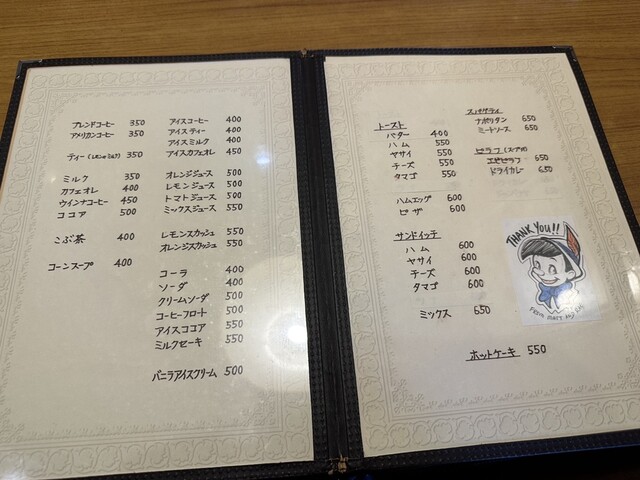 ブレンドコーヒー 350
アメリカンコーヒー 350
ティー(レモンorミルク) 350
ミルク 350
カフェオレ 400
ウインナコーヒー 450
ココア 500
こぶ茶 400
コーンスープ 400
アイスコーヒー 400
アイスティー 400
アイスミルク 400
アイスカフェオレ 450
オレンジジュース 500
レモンジュース 500
トマトジュース 500
ミックスジュース 550
レモンスカッシュ 550
オレンジスカッシュ 550
コーラ 400
ソーダ 400
クリームソーダ 500
コーヒーフロート 500
アイスココア 550
ミルクセーキ 550
バニラアイスクリーム 500
トースト
バター 400
ハム 550
ヤサイ 550
チーズ 550
タマゴ 550
ハムエッグ 600
ピザ 600
サンドイッチ
ハム 600
ヤサイ 600
チーズ 600
タマゴ 600
ミックス 650
スパゲティ
ナポリタン 650
ミートソース 650
ピラフ(スープ付)
エビピラフ 650
ドライカレー 650
THANK YOU!!
FROM
ホットケーキ 550